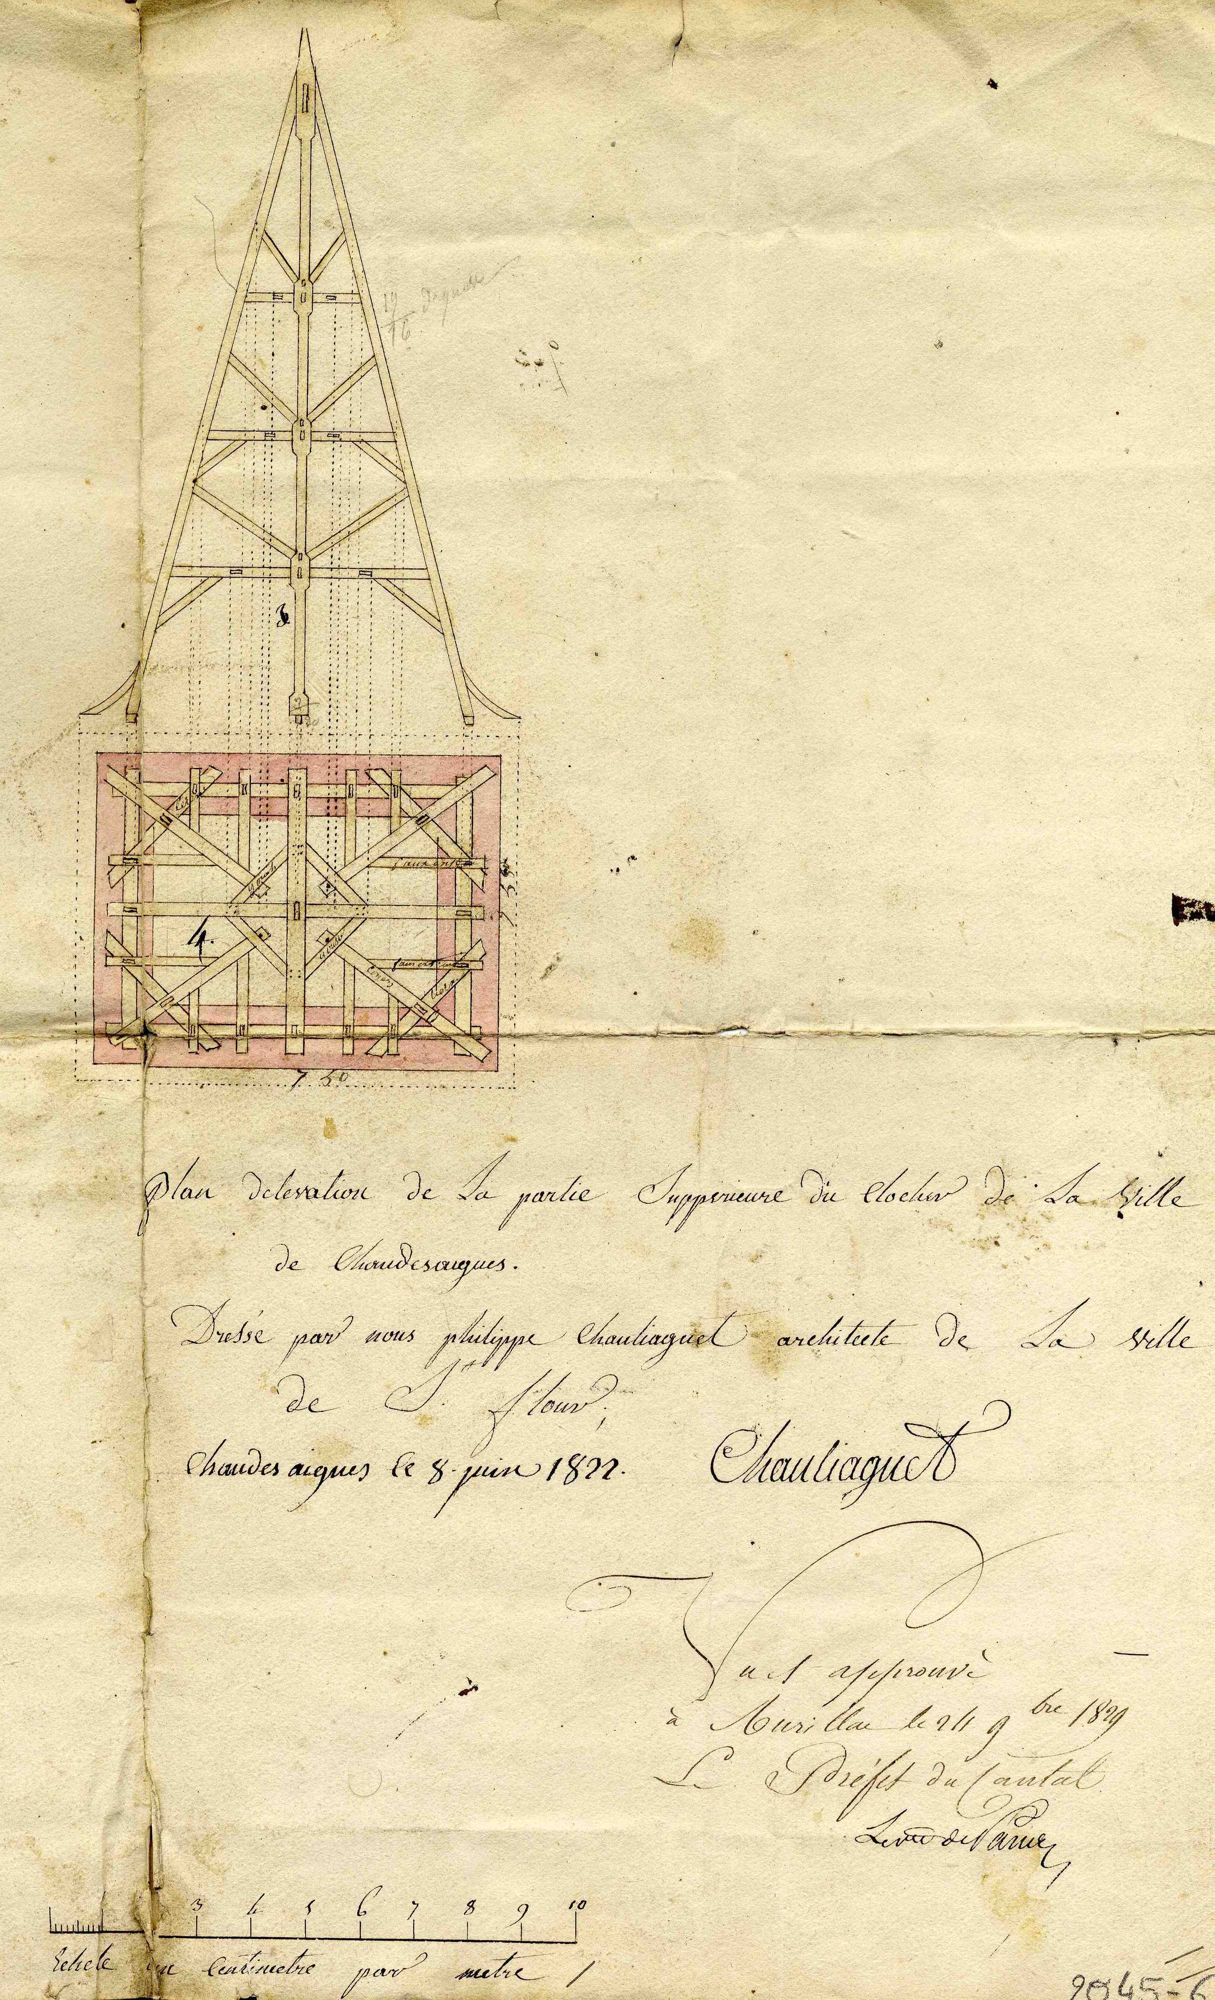 3
4.
7 50
Plan delevation de La partie Supperieure du Clocher de La Ville
de Chaudesaigues.
Dressé par nous philippe Chauliaguet architecte de La ville
de St. flour,
Chaudesaigues le 8 juin 1822.
Chauliaguet
Vu et approuvé
à Aurillac le 24 9bre 1829
Le Préfet du Cantal
3 4 5 6 7 8 9 10
Echele un Centimetre par metre
2045-6